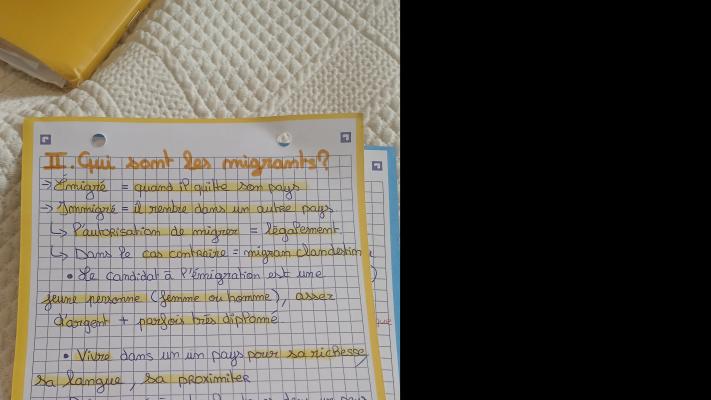 II. Qui sont les migrants?
→ Émigré = quand il quitte son pays
→ Immigré = il rentre dans un autre pays
↳ l'autorisation de migrer = légalement
↳ Dans le cas contraire = migran clandestin
• Le candidat à l'émigration est une
jeune personne (femme ou homme), assez
d'argent + parfois très diplomé
• Vivre dans un un pays pour sa richesse,
sa langue, sa proximiter